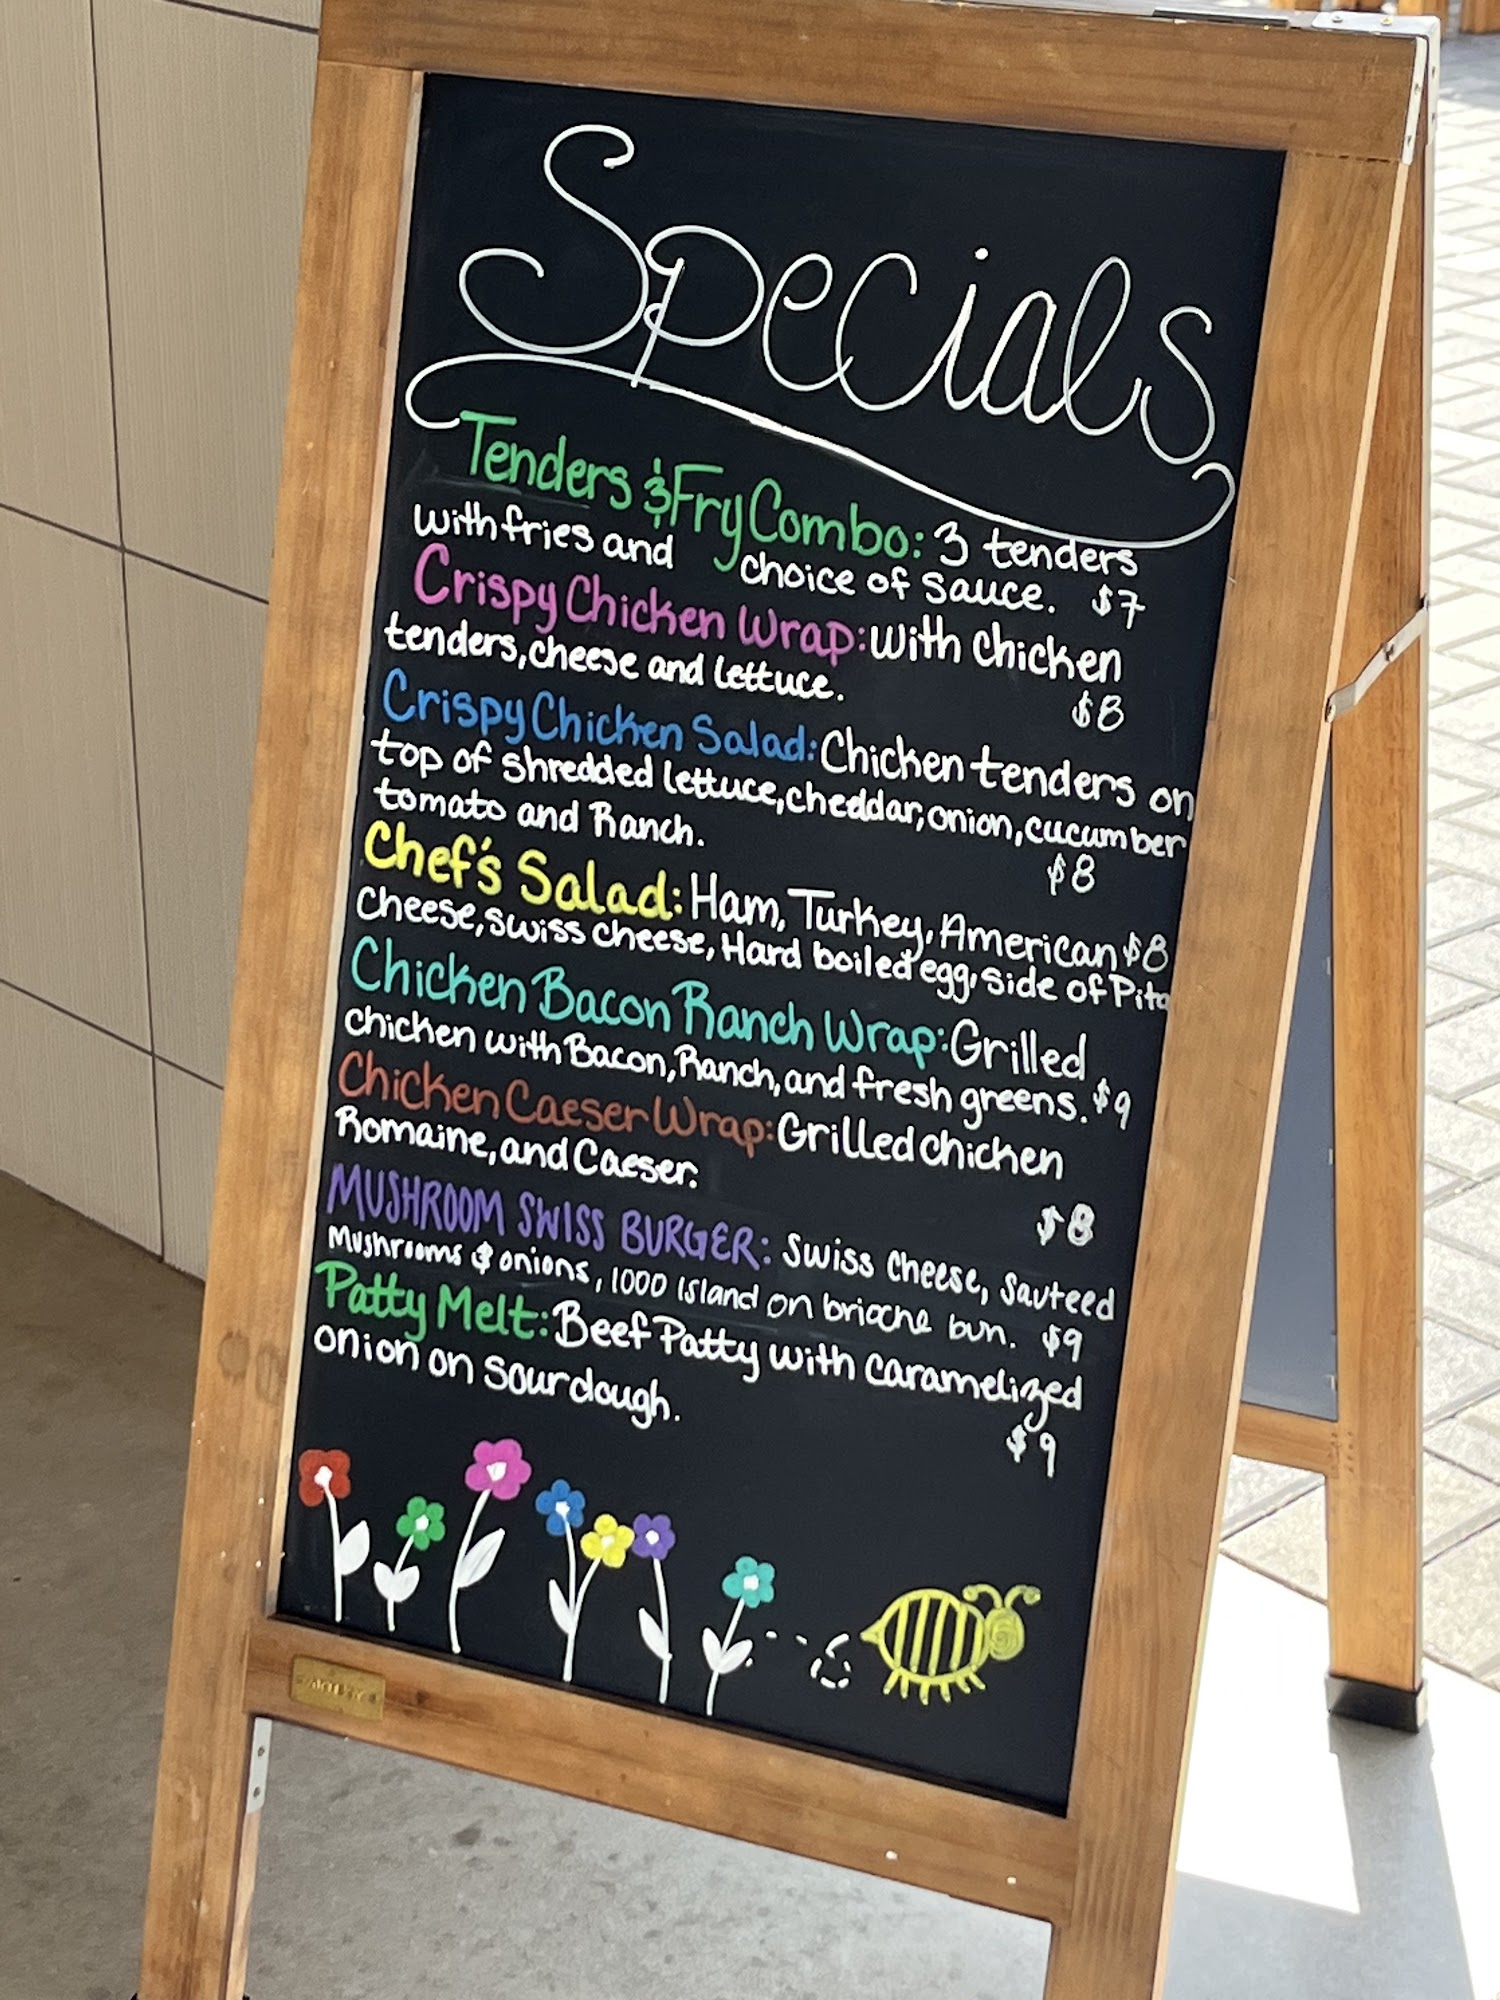 Specials
Tenders & Fry Combo: 3 tenders
with fries and choice of sauce. $7
Crispy Chicken Wrap: with chicken
tenders, cheese and lettuce. $8
Crispy Chicken Salad: Chicken tenders on
top of shredded lettuce, cheddar, onion, cucumber
tomato and Ranch. $8
Chef's Salad: Ham, Turkey, American $8
cheese, swiss cheese, Hard boiled egg, side of Pita
Chicken Bacon Ranch Wrap: Grilled
chicken with Bacon, Ranch, and fresh greens. $9
Chicken Caeser Wrap: Grilled chicken
Romaine, and Caeser. $8
MUSHROOM SWISS BURGER: Swiss Cheese, Sauteed
Mushrooms & onions, 1000 Island on brioche bun. $9
Patty Melt: Beef Patty with caramelized
onion on sourdough. $9